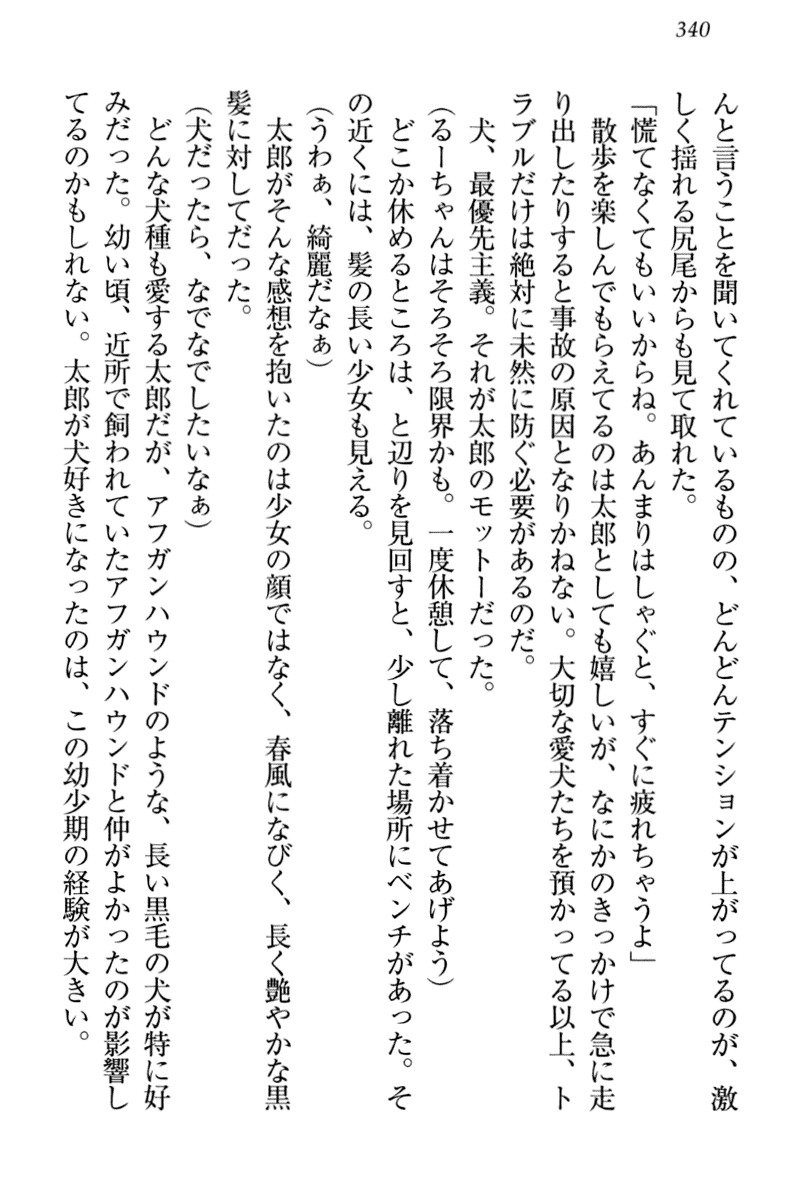 340
んと言うことを聞いてくれているものの、どんどんテンションが上がってるのが、激
しく揺れる尻尾からも見て取れた。
「慌てなくてもいいからね。あんまりはしゃぐと、すぐに疲れちゃうよ」
散歩を楽しんでもらえてるのは太郎としても嬉しいが、なにかのきっかけで急に走
り出したりすると事故の原因となりかねない。大切な愛犬たちを預かってる以上、ト
ラブルだけは絶対に未然に防ぐ必要があるのだ。
犬、最優先主義。それが太郎のモットーだった。
（るーちゃんはそろそろ限界かも。一度休憩して、落ち着かせてあげよう）
どこか休めるところは、と辺りを見回すと、少し離れた場所にベンチがあった。そ
の近くには、髪の長い少女も見える。
（うわぁ、綺麗だなぁ）
太郎がそんな感想を抱いたのは少女の顔ではなく、春風になびく、長く艶やかな黒
髪に対してだった。
（犬だったら、なでなでしたいなぁ）
どんな犬種も愛する太郎だが、アフガンハウンドのような、長い黒毛の犬が特に好
みだった。幼い頃、近所で飼われていたアフガンハウンドと仲がよかったのが影響し
てるのかもしれない。太郎が犬好きになったのは、この幼少期の経験が大きい。